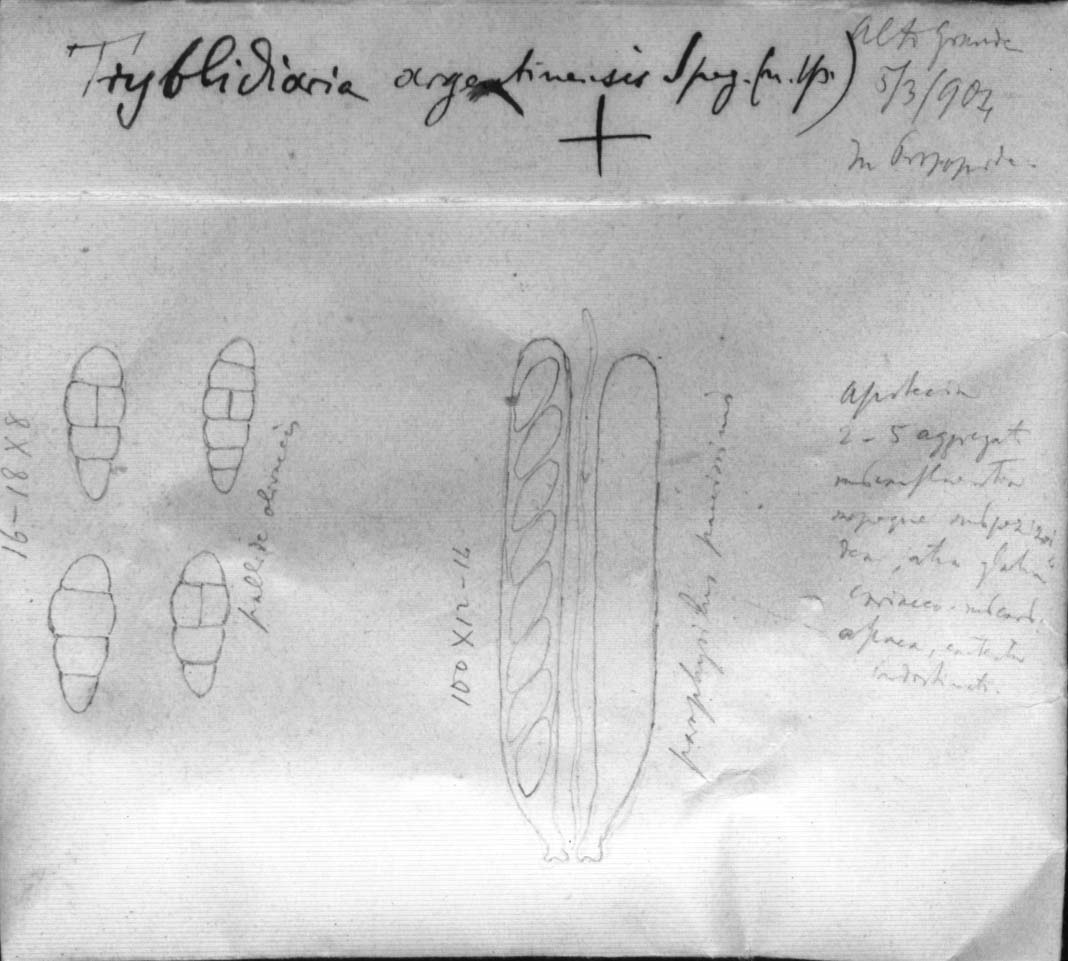 Tryblidiaria argentinensis Speg. (n. sp.)
Alto Grande
5/3/902
In
16-18 X 8
pallide olivaceis
100 X 12-14
paraphysibus paucissimis
Apotecia
2-5 aggregat
atra glabra
coriaceo-
opaca, contextu
indistincto.